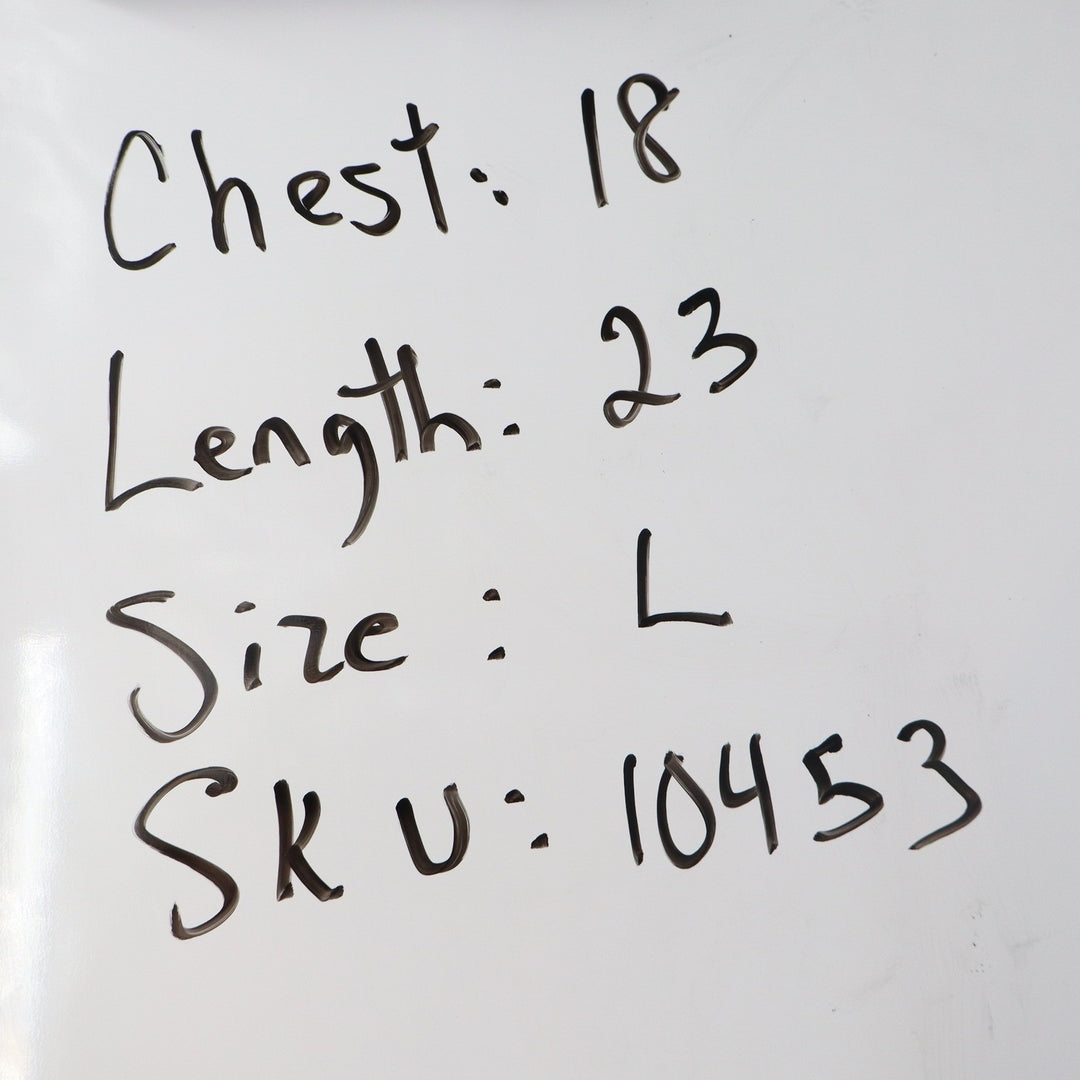 Chest: 18
Length: 23
Size: L
SKU: 10453